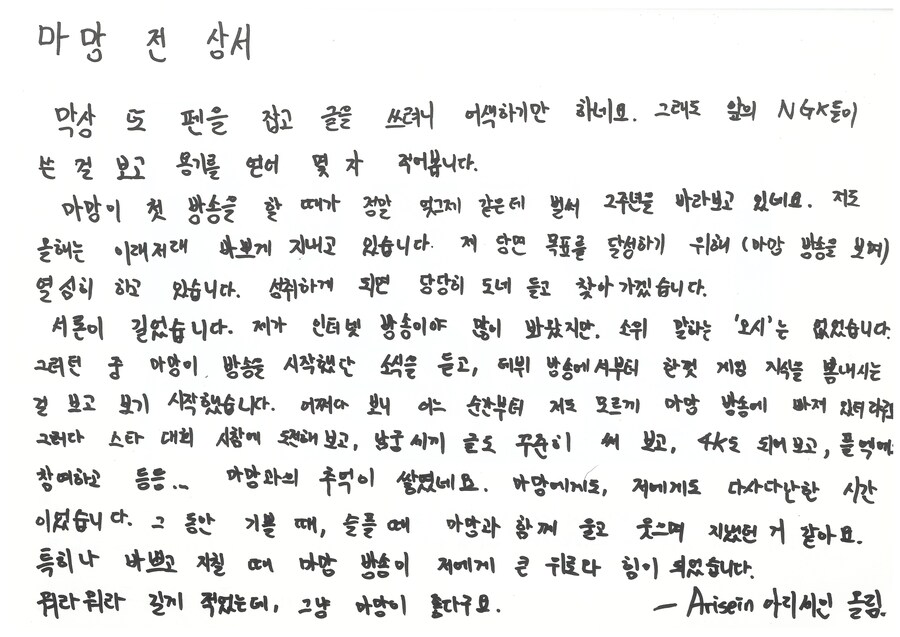 마망 전 상서
막상 또 펜을 잡고 글을 쓰려니 어색하기만 하네요. 그래도 앞의 NGK들이
쓴 걸 보고 용기를 얻어 몇 자 적어봅니다.
마망이 첫 방송을 할 때가 정말 엊그제 같은데 벌써 2주년을 바라보고 있네요. 저도
올해는 이래저래 바쁘게 지내고 있습니다. 저 당면 목표를 달성하기 위해 (마망 방송을 보며)
열심히 하고 있습니다. 성취하게 되면 당당히 도네 들고 찾아가겠습니다.
서론이 길었습니다. 제가 인터넷 방송이야 많이 봐왔지만. 소위 말하는 '오시'는 없었습니다.
그러던 중 마망이 방송을 시작했단 소식을 듣고, 데뷔 방송에서부터 한껏 게임 지식을 뽐내시는
걸 보고 보기 시작했습니다. 어쩌다 보니 어느 순간부터 저도 모르게 마망 방송에 빠져 있더라구요
그러다 스타 대회 시참에 도전해 보고, 글도 꾸준히 써 보고, 4K도 되어 보고, 플엑에
참여하고 등등... 마망과의 추억이 쌓였네요. 마망에게도, 저에게도 다사다난한 시간
이었습니다. 그 동안 기쁠 때, 슬플 때 마망과 함께 울고 웃으며 지냈던 거 같아요.
특히나 바쁘고 지칠 때 마망 방송이 저에게 큰 위로와 힘이 되었습니다.
뭐라뭐라 길게 적었는데, 그냥 마망이 좋다구요. — Arisein 아리세인 올림.